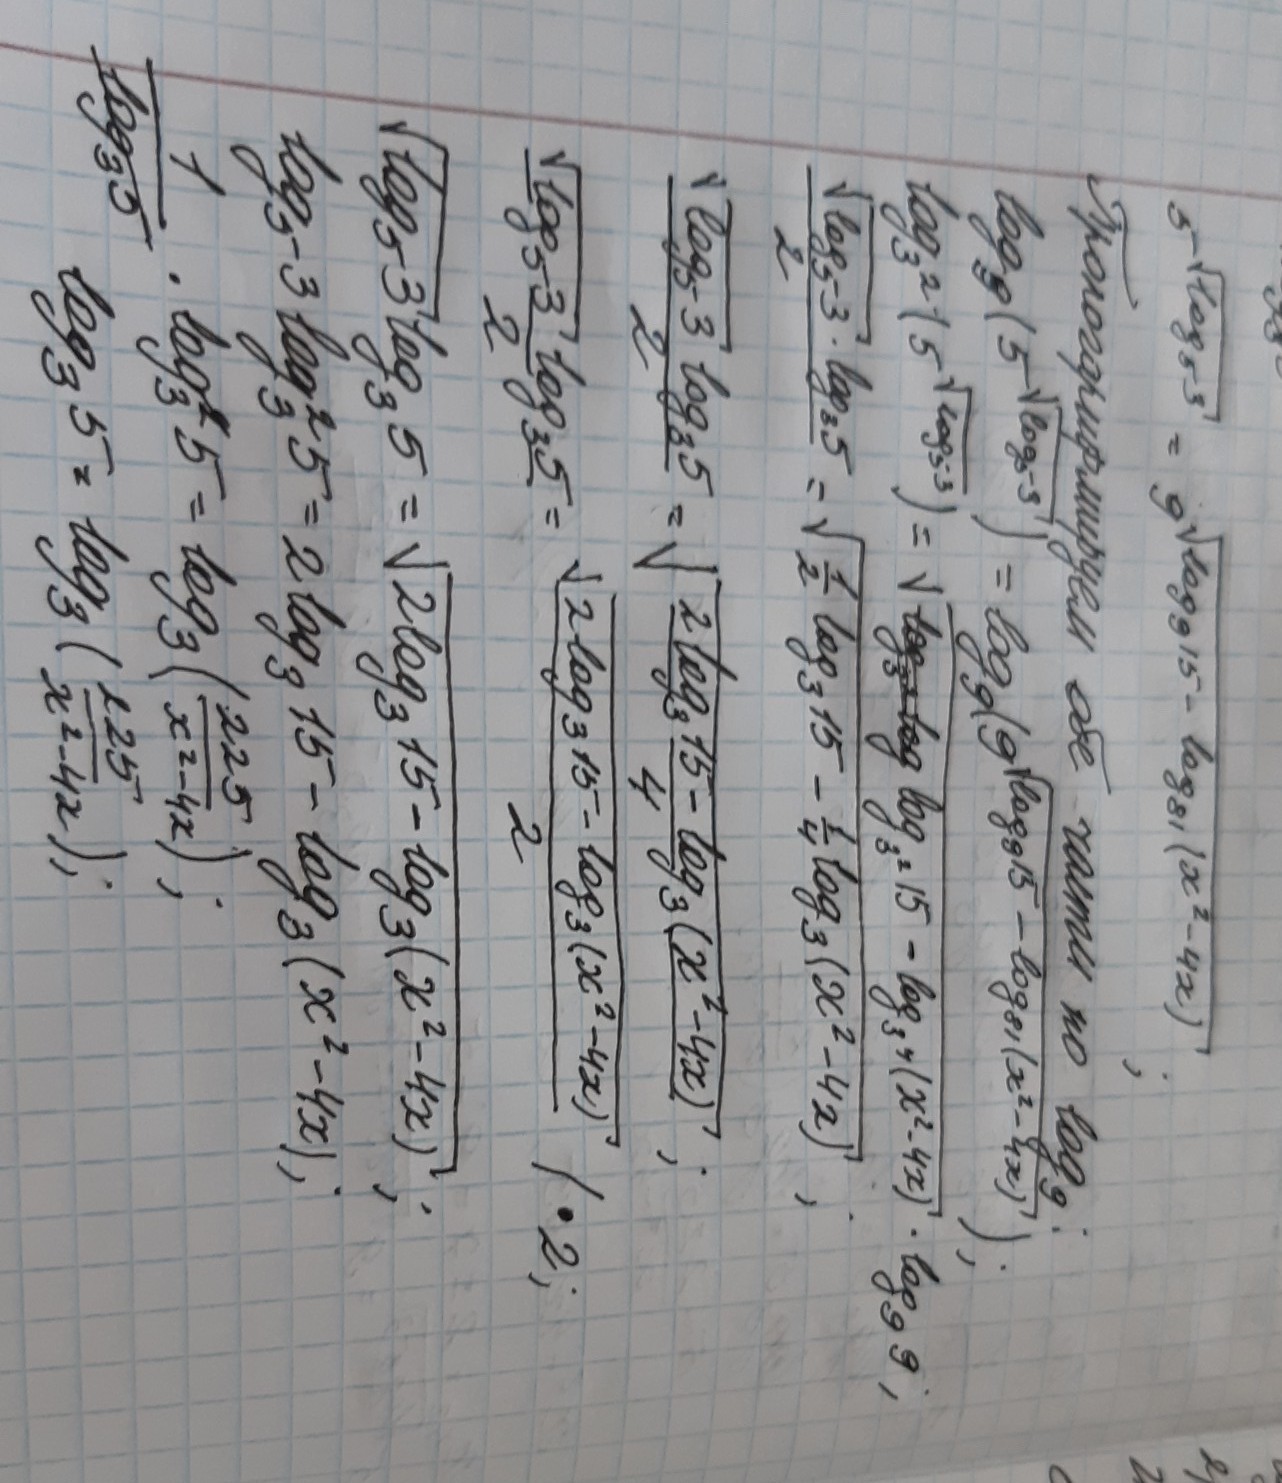 5^√(log₅3) = 9^√(log₉15 - log₈₁(x² - 4x));
Прологарифмируем обе части по log₉:
log₉(5^√(log₅3)) = log₉(9^√(log₉15 - log₈₁(x² - 4x)));
log₃²(5^√(log₅3)) = √(log₃²15 - log₃⁴(x² - 4x)) · log₉9;
(√(log₅3) · log₃5)/2 = √(1/2 log₃15 - 1/4 log₃(x² - 4x));
(√(log₅3) log₃5)/2 = √((2log₃15 - log₃(x² - 4x))/4);
(√(log₅3) log₃5)/2 = √(2log₃15 - log₃(x² - 4x))/2 / · 2;
√(log₅3) log₃5 = √(2log₃15 - log₃(x² - 4x));
log₅3 log₃²5 = 2log₃15 - log₃(x² - 4x);
1/(log₃5) · log₃²5 = log₃(225/(x² - 4x));
log₃5 = log₃(225/(x² - 4x));